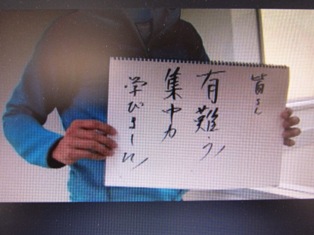 皆さん
有難う
集中力
学びました